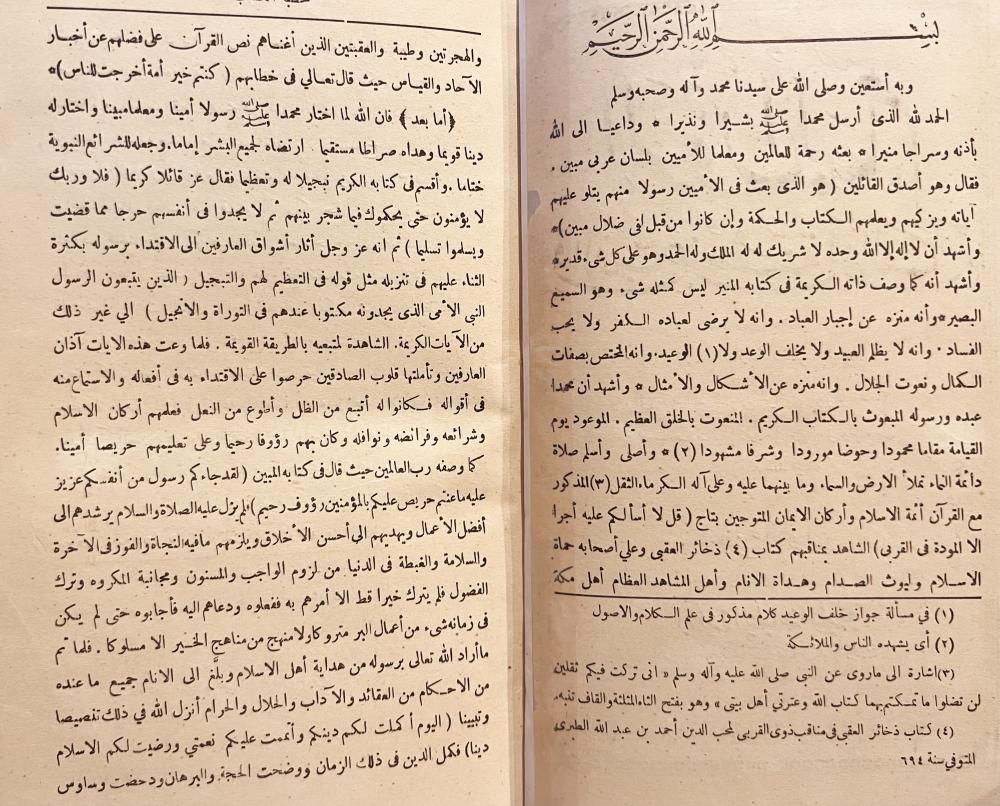 بسم الله الرحمن الرحيم
وبه أستعين وصلى الله على سيدنا محمد وآله وصحبه وسلم
الحمد لله الذى أرسل محمدا ﷺ بشيرا ونذيرا * وداعيا الى الله
بأذنه وسراجا منيرا * بعثه رحمة للعالمين ومعلما للأميين بلسان عربى مبين .
فقال وهو أصدق القائلين ( هو الذى بعث فى الأميين رسولا منهم يتلو عليهم
آياته ويزكيهم ويعلمهم الكتاب والحكمة وإن كانوا من قبل لفى ضلال مبين)*
وأشهد أن لاإله إلا الله وحده لا شريك له له الملك وله الحمد وهو على كل شىء قدير*
وأشهد أنه كما وصف ذاته الكريمة فى كتابه المنير ليس كمثله شىء وهو السميع
البصير * وأنه منزه عن إجبار العباد . وانه لا يرضى لعباده الكفر ولا يحب
الفساد . وانه لا يظلم العبيد ولا يخلف الوعد ولا (١) الوعيد . وانه المختص بصفات
الكمال ونعوت الجلال . وانه منزه عن الأشكال والأمثال * وأشهد أن محمدا
عبده ورسوله المبعوث بالكتاب الكريم . المنعوت بالخلق العظيم . الموعود يوم
القيامة مقاما محمودا وحوضا مورودا وشرفا مشهودا (٢) * وأصلى وأسلم صلاة
دائمة النماء تملأ الارض والسماء وما بينهما عليه وعلى آله الكرماء الثقل (٣) المذكور
مع القرآن أئمة الاسلام وأركان الايمان المتوجين بتاج ( قل لا أسألكم عليه أجرا
الا المودة فى القربى ) الشاهد بمناقبهم كتاب (٤) ذخائر العقبى وعلي أصحابه حماة
الاسلام وليوث الصدام وهداة الانام وأهل المشاهد العظام أهل مكة
(١) في مسألة جواز خلف الوعيد كلام مذكور فى علم الكلام والاصول
(٢) أى يشهده الناس والملائكة
(٣) اشارة الى ماروى عن النبي صلى الله عليه وآله وسلم « انى تركت فيكم ثقلين
لن تضلوا ما تمسكتم بهما كتاب الله وعترتي أهل بيتى » وهو بفتح الثاء المثلثة والقاف تنبه .
(٤) كتاب ذخائر العقبى فى مناقب ذوى القربى لمحب الدين أحمد بن عبد الله الطبرى
المتوفى سنة ٦٩٤
والهجرتين وطيبة والعقبتين الذين أغناهم نص القرآن على فضلهم عن أخبار
الآحاد والقياس حيث قال تعالى فى خطابهم ( كنتم خير أمة أخرجت للناس)*
﴿أما بعد﴾ فان الله لما اختار محمدا ﷺ رسولا أمينا ومعلما مبينا واختار له
دينا قويما وهداه صراطا مستقيما . ارتضاه لجميع البشر إماما . وجعله للشرائع النبوية
ختاما . وأقسم فى كتابه الكريم تبجيلا له وتعظيما فقال عز قائلا كريما ( فلا وربك
لا يؤمنون حتى يحكموك فيما شجر بينهم ثم لا يجدوا فى أنفسهم حرجا مما قضيت
ويسلموا تسليما ) ثم انه عز وجل أثار أشواق العارفين الى الاقتداء برسوله بكثرة
الثناء عليهم فى تنزيله مثل قوله فى التعظيم لهم والتبجيل ( الذين يتبعون الرسول
النبى الأمى الذى يجدونه مكتوبا عندهم فى التوراة والانجيل ) الي غير ذلك
من الآيات الكريمة . الشاهدة لمتبعيه بالطريقة القويمة . فلما وعت هذه الايات آذان
العارفين وتأملتها قلوب الصادقين حرصوا على الاقتداء به فى أفعاله والاستماع منه
فى أقواله فكانوا له أتبع من الظل وأطوع من النعل فعلمهم أركان الاسلام
وشرائعه وفرائضه ونوافله وكان بهم رؤوفا رحيما وعلى تعليمهم حريصا أمينا .
كما وصفه رب العالمين حيث قال فى كتابه المبين ( لقد جاءكم رسول من أنفسكم عزيز
عليه ما عنتم حريص عليكم بالمؤمنين رؤوف رحيم) فلم يزل عليه الصلاة والسلام يرشدهم الى
أفضل الأعمال ويهديهم الى أحسن الأخلاق ويلزمهم ما فيه النجاة والفوز فى الآخرة
والسلامة والغبطة فى الدنيا من لزوم الواجب والمسنون ومجانبة المكروه وترك
الفضول فلم يترك خيرا قط الا أمرهم به ففعلوه ودعاهم اليه فأجابوه حتى لم يكن
فى زمانه شىء من أعمال البر متروكا ولا منهج من مناهج الخير الا مسلوكا . فلما تم
ما أراد الله تعالى برسوله من هداية أهل الاسلام وبلَّغ الى الانام جميع ما عنده
من الاحكام من العقائد والآداب والحلال والحرام أنزل الله في ذلك تنصيصا
وتبيينا ( اليوم أكملت لكم دينكم وأتممت عليكم نعمتي ورضيت لكم الاسلام
دينا) فكمل الدين فى ذلك الزمان ووضحت الحجة والبرهان ودحضت وساوس